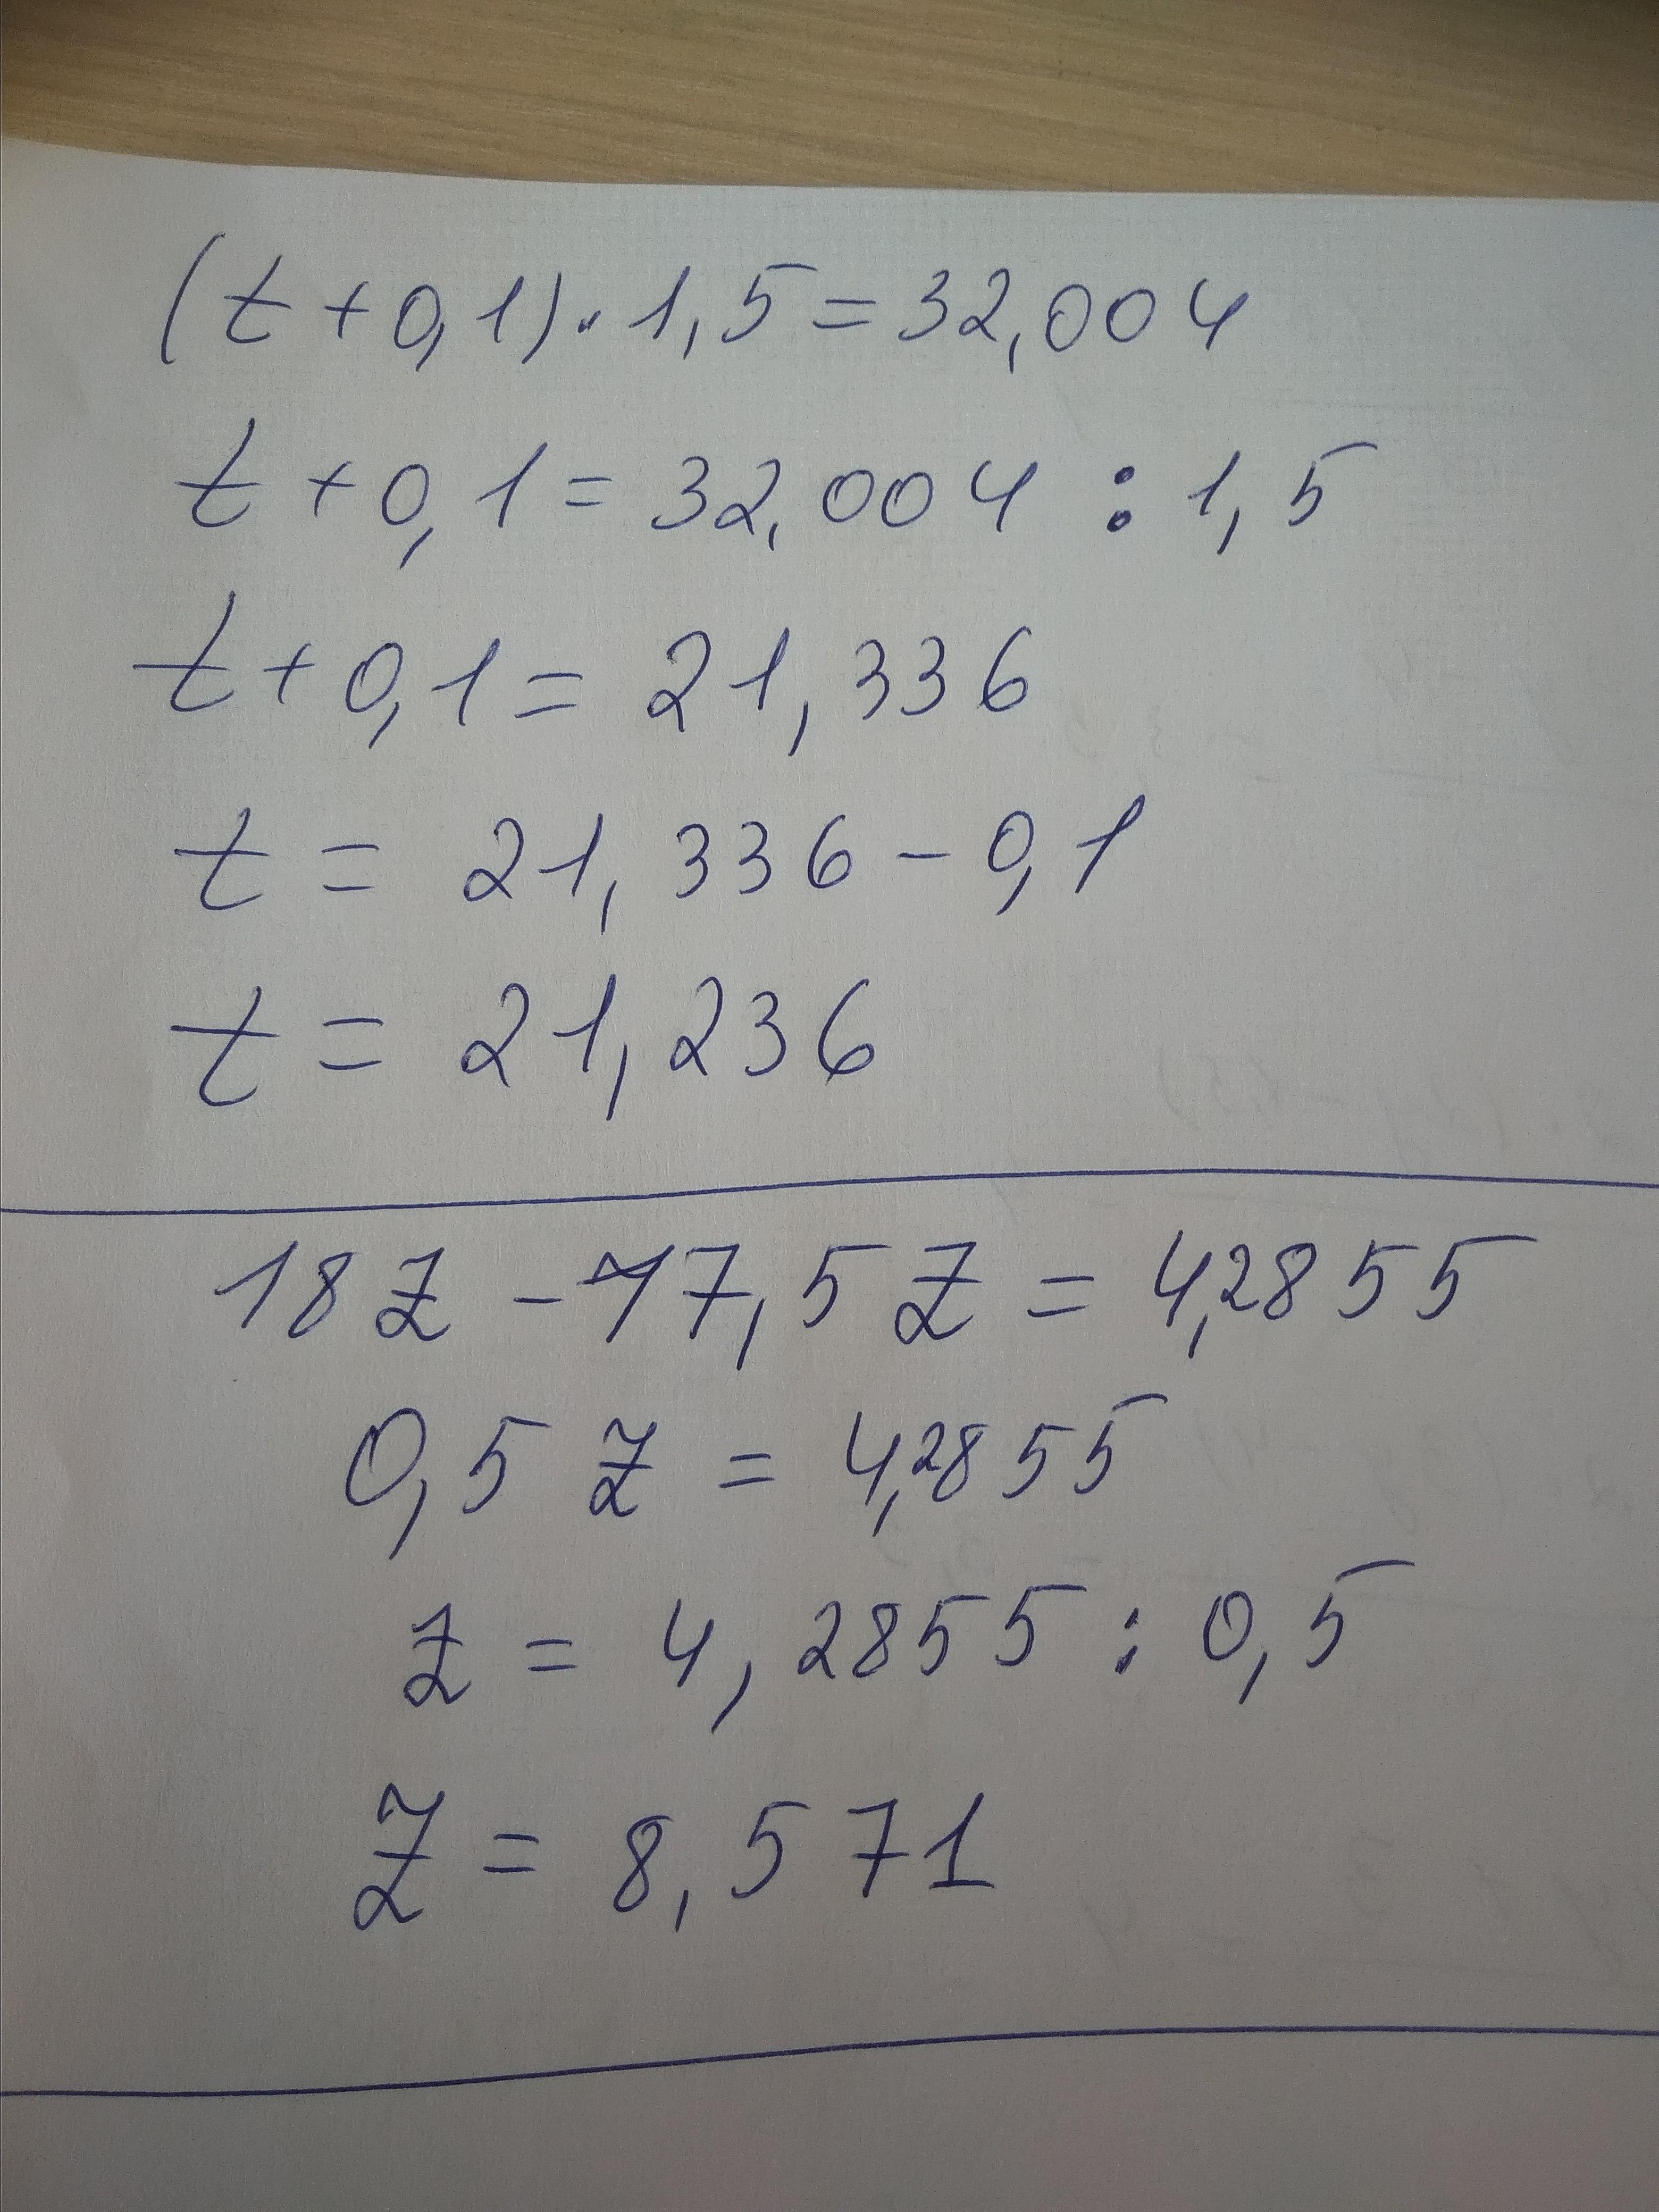 (t + 0,1) · 1,5 = 32,004
t + 0,1 = 32,004 : 1,5
t + 0,1 = 21,336
t = 21,336 - 0,1
t = 21,236
18 Z - 17,5 Z = 4,2855
0,5 Z = 4,2855
Z = 4,2855 : 0,5
Z = 8,571